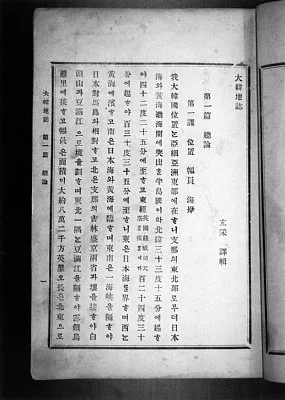 大韓地誌
玄采 譯輯
第一篇 總論
第一課 位置 幅員 海岸
我大韓國位置ᄂᆞᆫ亞細亞洲東部에在ᄒᆞ니支那의東北部로부터日本
海와黃海渤海間에突出ᄒᆞᆫ半島國이라北緯三十三度十五分에起ᄒᆞ
야四十二度二十五分에至ᄒᆞ고東經一百二十四度三十
分에起ᄒᆞ야一百三十度三十五分에至ᄒᆞ니東은日本海를界ᄒᆞ며西ᄂᆞᆫ
黃海에濱ᄒᆞ고南은一海峽을隔ᄒᆞ야
日本對馬島와相對ᄒᆞ고北은支那의吉林盛京兩省과壤을接ᄒᆞ야白
頭山과豆滿江으로境을劃ᄒᆞ며東北一隅ᄂᆞᆫ豆滿江을隔ᄒᆞ야露領烏
蘇里에接ᄒᆞ고幅員은面積이大約八萬二千方英里오長은北東으로
大韓地誌 第一篇 總論 一